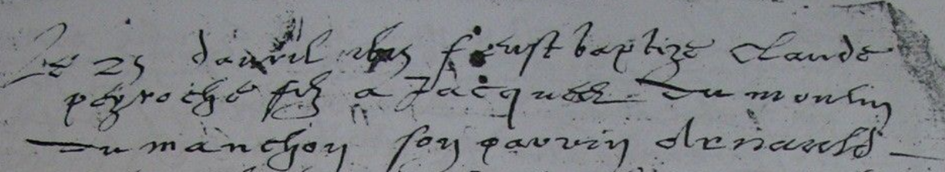 Le 25 dauril feust baptize Claude
peyroche filz a Jacques du moulin
du manchon son parrin